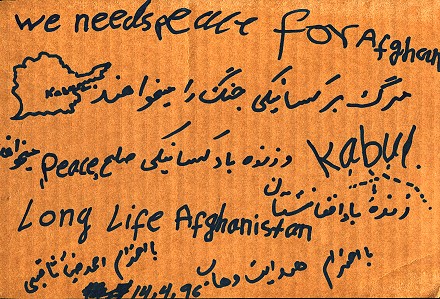 we needspeace for Afghan
Kabul
مرگ بر کسانیکی جنگ را میخواهند
و زنده باد کسانیکی صلح peace میخواهند
Kabul.
زنده باد افغانستان
Long Life Afghanistan
با احترام احمد ضیا
با احترام هدایت وهاب
14.4.96